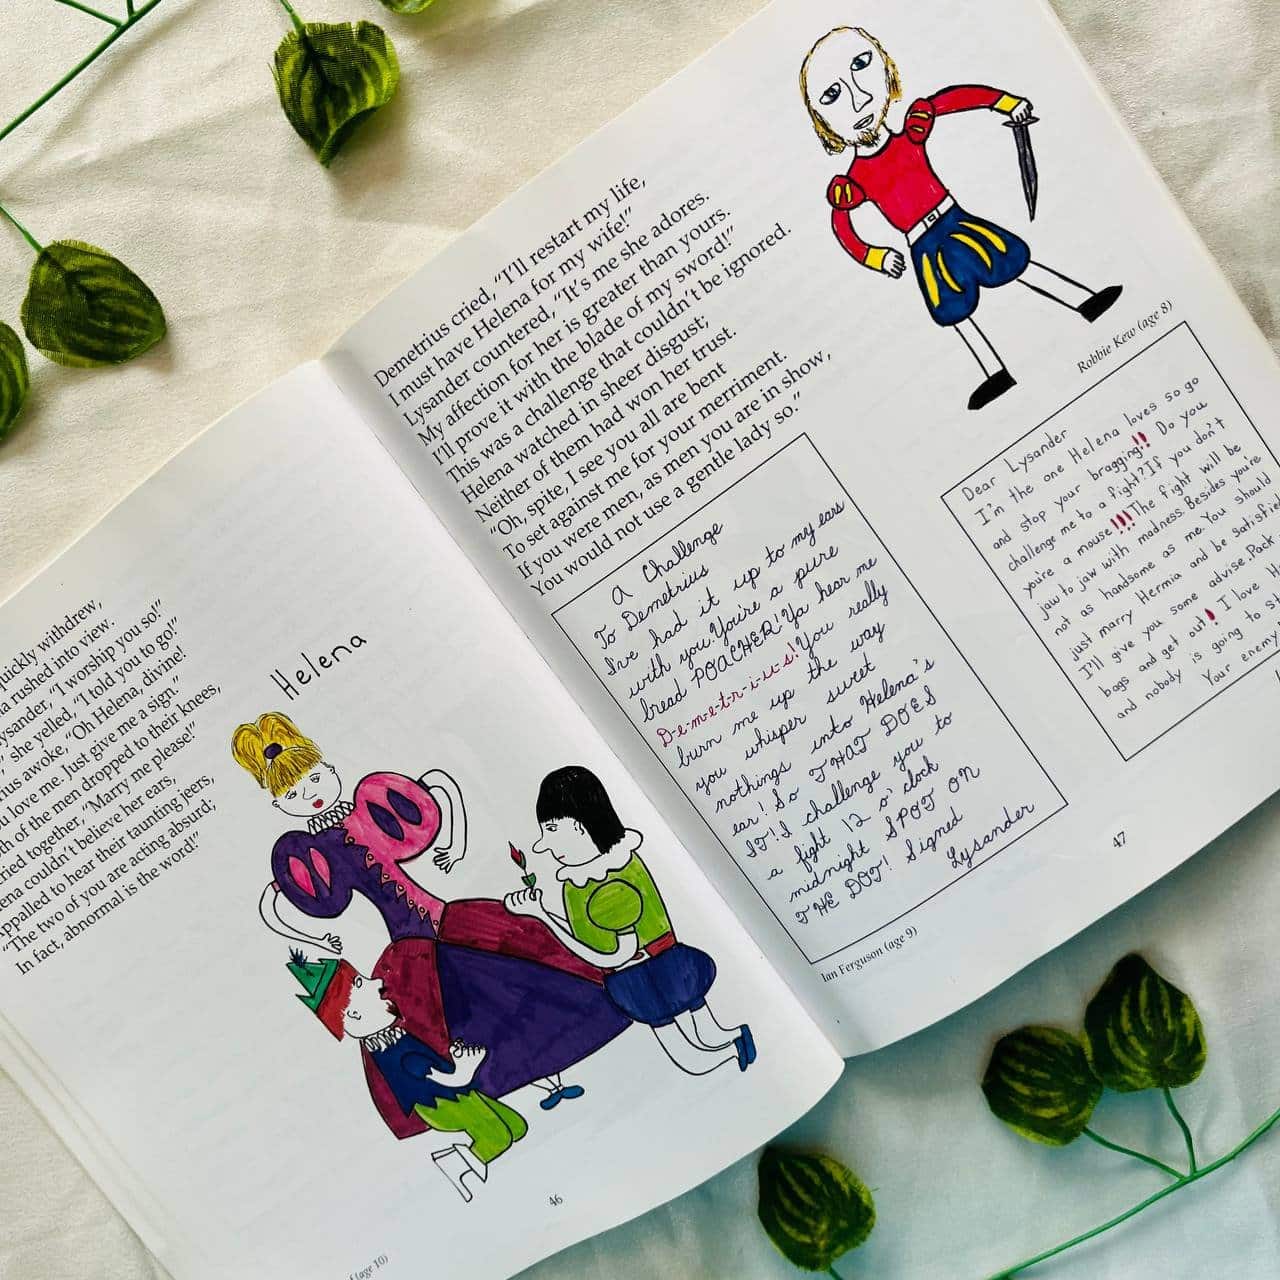 quickly withdrew,
rushed into view.
Lysander, "I worship you so!"
she yelled, "I told you to go!"
awoke, "Oh Helena, divine!
love me. Just give me a sign."
of the men dropped to their knees,
together, "Marry me please!"
couldn't believe her ears,
to hear their taunting jeers,
"The two of you are acting absurd;
In fact, abnormal is the word!"
Helena
46
(age 10)
Demetrius cried, "I'll restart my life,
I must have Helena for my wife!"
Lysander countered, "It's me she adores.
My affection for her is greater than yours.
I'll prove it with the blade of my sword!"
This was a challenge that couldn't be ignored.
Helena watched in sheer disgust;
Neither of them had won her trust.
"Oh, spite, I see you all are bent
To set against me for your merriment.
If you were men, as men you are in show,
You would not use a gentle lady so."
Robbie Kew (age 8)
A Challenge
To Demetrius
I've had it up to my ears
with you. You're a pure
bread POACHER! Ya hear me
D-e-m-e-t-r-i-u-s! You really
burn me up the way
you whisper sweet
nothings into Helena's
ear! So THAT DOES
IT! I challenge you to
a fight 12 o'clock
midnight SPOT ON
THE DOT! Signed
Lysander
Ian Ferguson (age 9)
Dear Lysander
I'm the one Helena loves so go
and stop your bragging!! Do you
challenge me to a fight? If you don't
you're a mouse!!! The fight will be
jaw to jaw with madness. Besides you're
not as handsome as me. You should
just marry Hermia and be
I'll give you some advise. Pack
bags and get out! I love
and nobody is going to
Your enemy
47